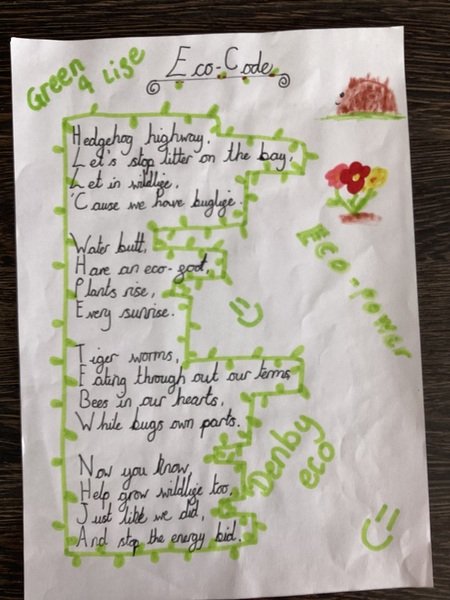 Green 4 Life
Eco-Code
Hedgehog highway,
Let's stop litter on the bay,
Let in wildlife,
'Cause we have buglife.
Water butt,
Have an eco-foot,
Plants rise,
Every sunrise.
Tiger worms,
Eating through out our terms,
Bees in our hearts,
While bugs own parts.
Now you know,
Help grow wildlife too,
Just like we did,
And stop the energy bid.
Eco-power
Denby
eco